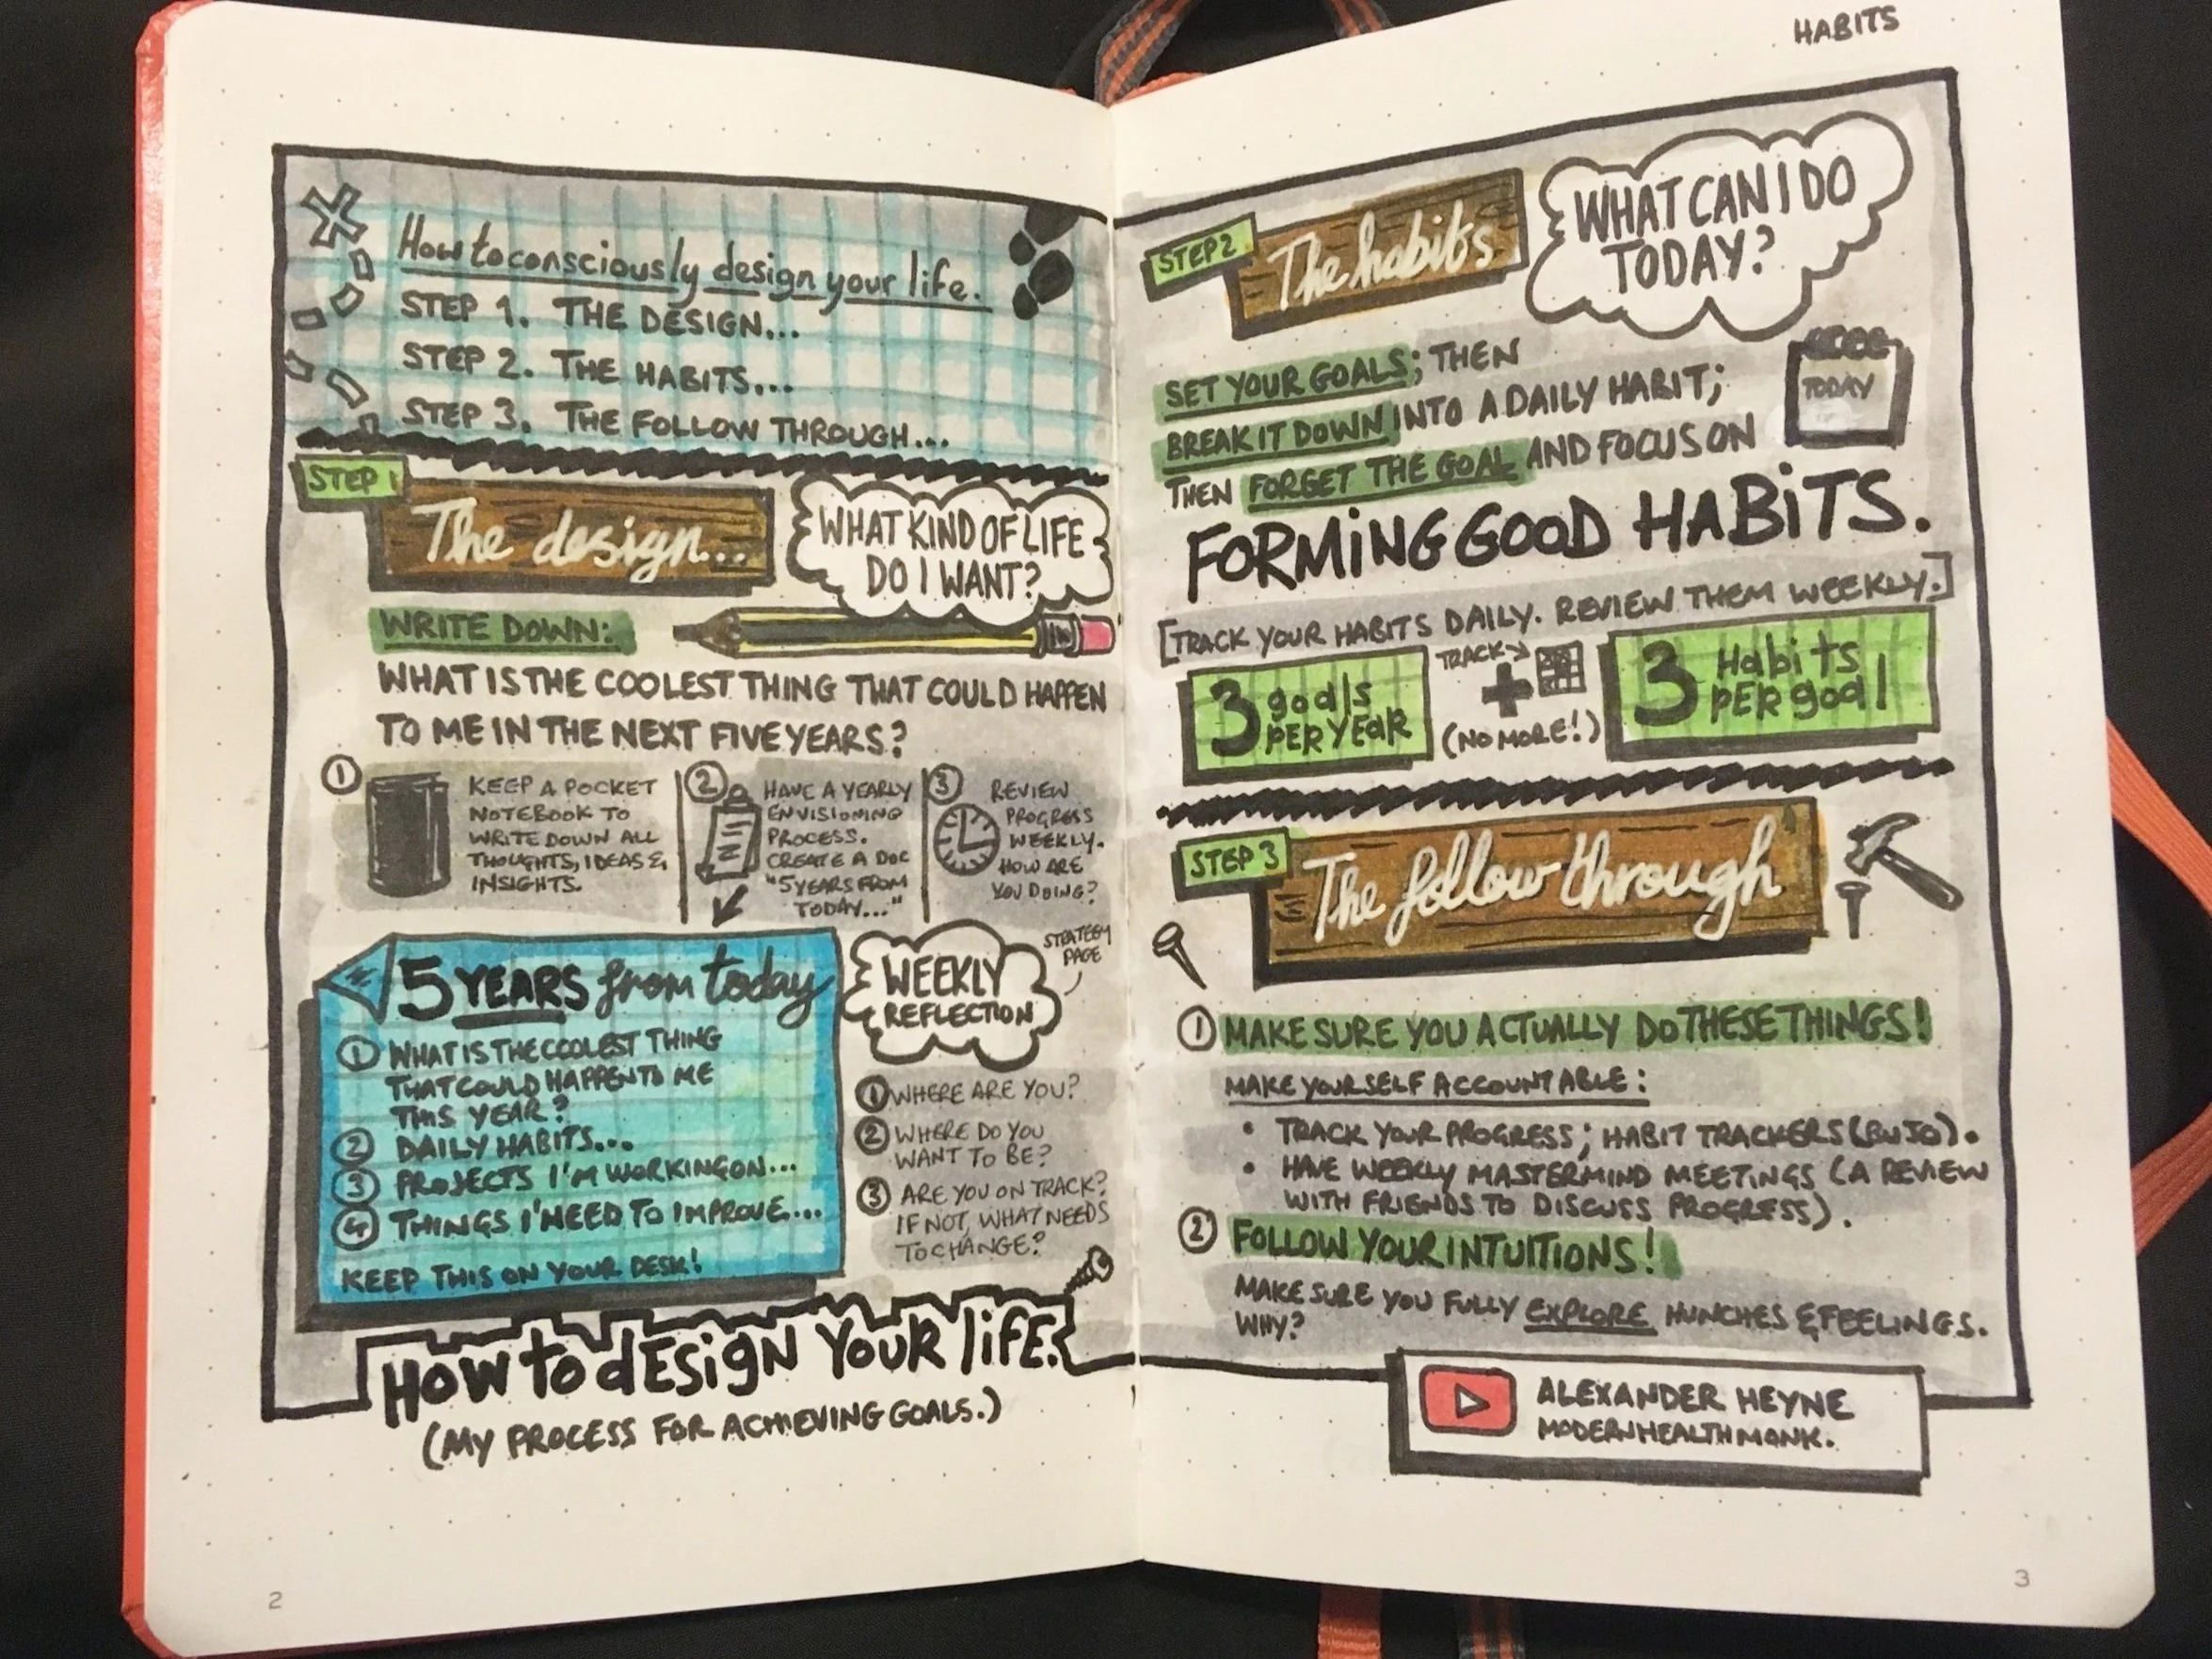 How to consciously design your life.
STEP 1. THE DESIGN...
STEP 2. THE HABITS...
STEP 3. THE FOLLOW THROUGH...
STEP 1
The design...
WHAT KIND OF LIFE
DO I WANT?
WRITE DOWN:
WHAT IS THE COOLEST THING THAT COULD HAPPEN
TO ME IN THE NEXT FIVE YEARS?
1
KEEP A POCKET
NOTEBOOK TO
WRITE DOWN ALL
THOUGHTS, IDEAS &
INSIGHTS.
2
HAVE A YEARLY
ENVISIONING
PROCESS.
CREATE A DOC
"5 YEARS FROM
TODAY..."
3
REVIEW
PROGRESS
WEEKLY.
HOW ARE
YOU DOING?
5 YEARS from today
1 WHAT IS THE COOLEST THING
THAT COULD HAPPEN TO ME
THIS YEAR?
2 DAILY HABITS...
3 PROJECTS I'M WORKING ON...
4 THINGS I NEED TO IMPROVE...
KEEP THIS ON YOUR DESK!
WEEKLY
REFLECTION
STRATEGY
PAGE
1 WHERE ARE YOU?
2 WHERE DO YOU
WANT TO BE?
3 ARE YOU ON TRACK?
IF NOT, WHAT NEEDS
TO CHANGE?
HOW to dESigN YOUR liFE.
(MY PROCESS FOR ACHIEVING GOALS.)
2
HABITS
STEP 2
The habits
WHAT CAN I DO
TODAY?
SET YOUR GOALS; THEN
BREAK IT DOWN INTO A DAILY HABIT;
THEN FORGET THE GOAL AND FOCUS ON
TODAY
FORMiNG GOOD HABiTS.
[TRACK YOUR HABITS DAILY. REVIEW THEM WEEKLY.]
3 goals
PER YEAR
TRACK
+
(NO MORE!)
3 Habits
PER goal
STEP 3
The follow through
1 MAKE SURE YOU ACTUALLY DO THESE THINGS!
MAKE YOURSELF ACCOUNTABLE:
• TRACK YOUR PROGRESS; HABIT TRACKERS (BUJO).
• HAVE WEEKLY MASTERMIND MEETINGS (A REVIEW
WITH FRIENDS TO DISCUSS PROGRESS).
2 FOLLOW YOUR INTUITIONS!
MAKE SURE YOU FULLY EXPLORE HUNCHES & FEELINGS.
WHY?
ALEXANDER HEYNE
MODERNHEALTHMONK.
3